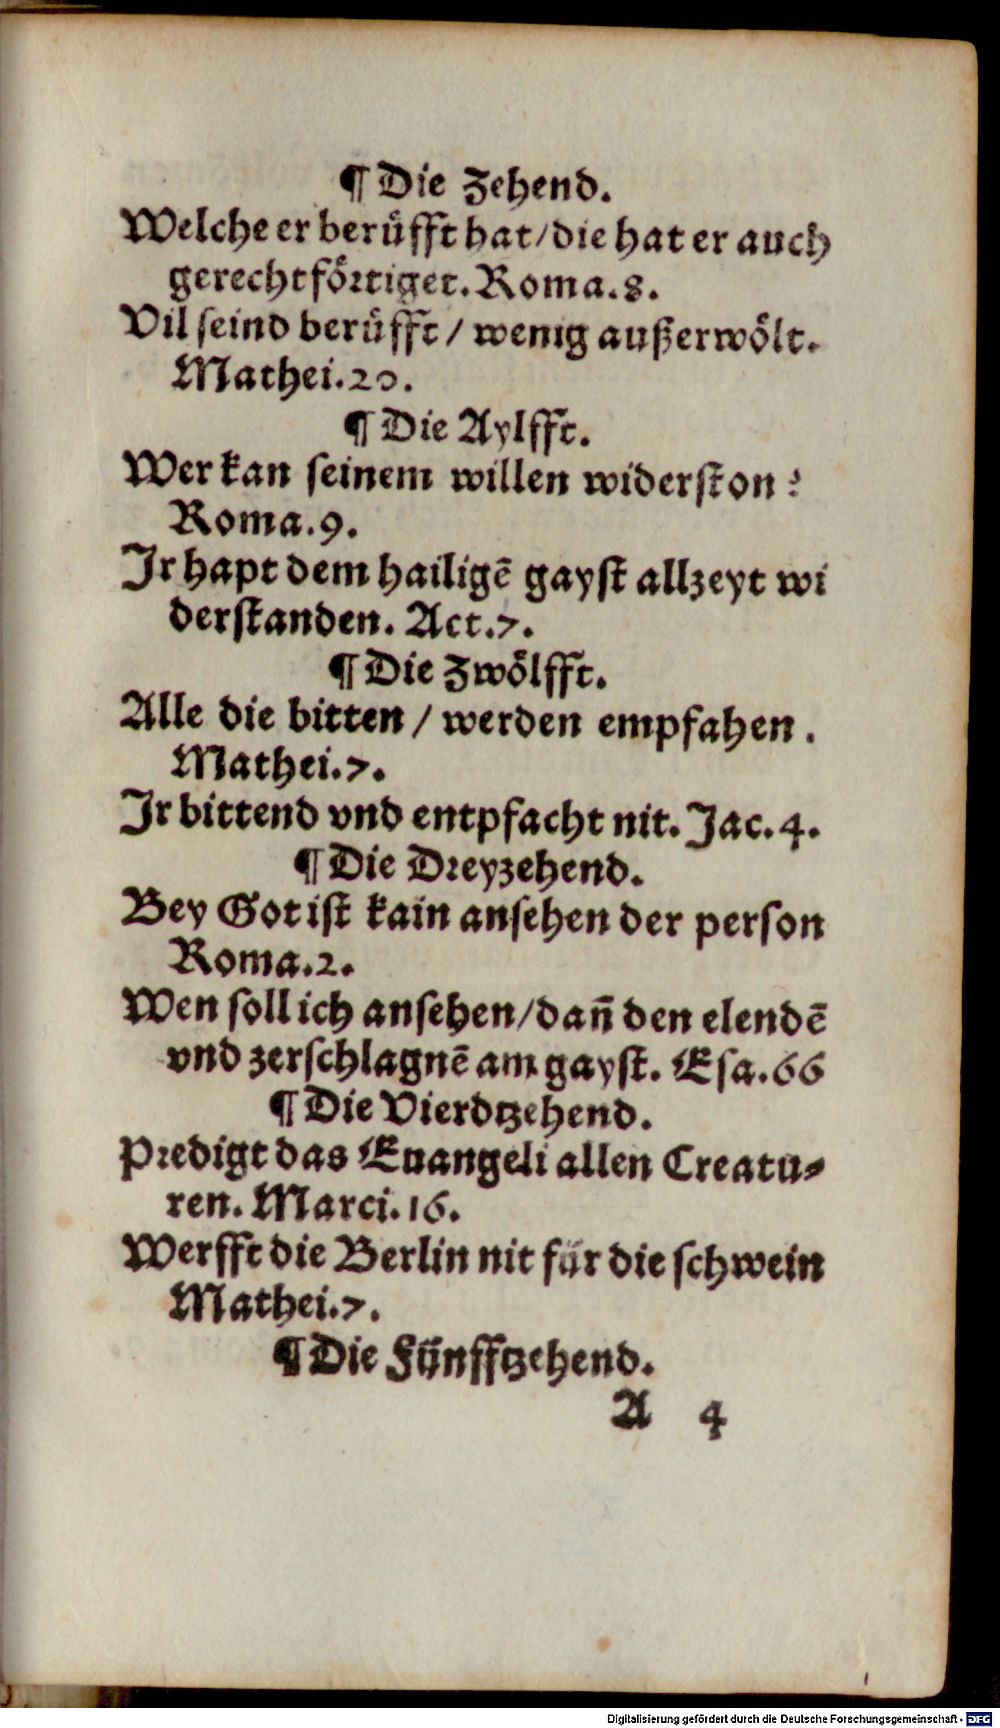 ¶ Die Zehend.
Welche er beruͤfft hat/die hat er auch
gerechtfoͤrtiget. Roma.8.
Vil seind beruͤfft / wenig außerwoͤlt.
Mathei.20.
¶ Die Aylfft.
Wer kan seinem willen widerston ?
Roma.9.
Jr hapt dem hailigē gayst allzeyt wi
derstanden. Act.7.
¶ Die Zwoͤlfft.
Alle die bitten / werden empfahen .
Mathei.7.
Jr bittend vnd entpfacht nit. Jac.4.
¶ Die Dreyzehend.
Bey Got ist kain ansehen der person
Roma.2.
Wen soll ich ansehen/dañ den elendē
vnd zerschlagnē am gayst. Esa.66
¶ Die Vierdtzehend.
Predigt das Euangeli allen Creatu-
ren. Marci.16.
Werfft die Berlin nit für die schwein
Mathei.7.
¶ Die Fünfftzehend.
A 4
Digitalisierung gefördert durch die Deutsche Forschungsgemeinschaft - DFG